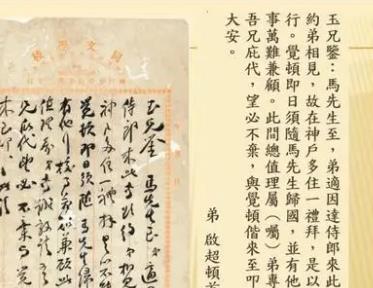 玉兄鑒：馬先生至，弟適因達侍郎來此
約弟相見，故在神戶多住一禮拜，是以
行。覺頓即日須隨馬先生歸國，並有他
事萬難兼顧。此間總值理屬（囑）弟專
吾兄庇代，望必不棄，與覺頓偕來至叩
大安。
弟 啟超頓首
同文學校
玉兄鑒 馬先生至 弟適
侍郎來此 約弟相見
神戶多住一禮拜 是以不
覺頓即日須隨馬先生歸
有他事 萬難兼顧 此
兄庇代 望必不棄 與覺